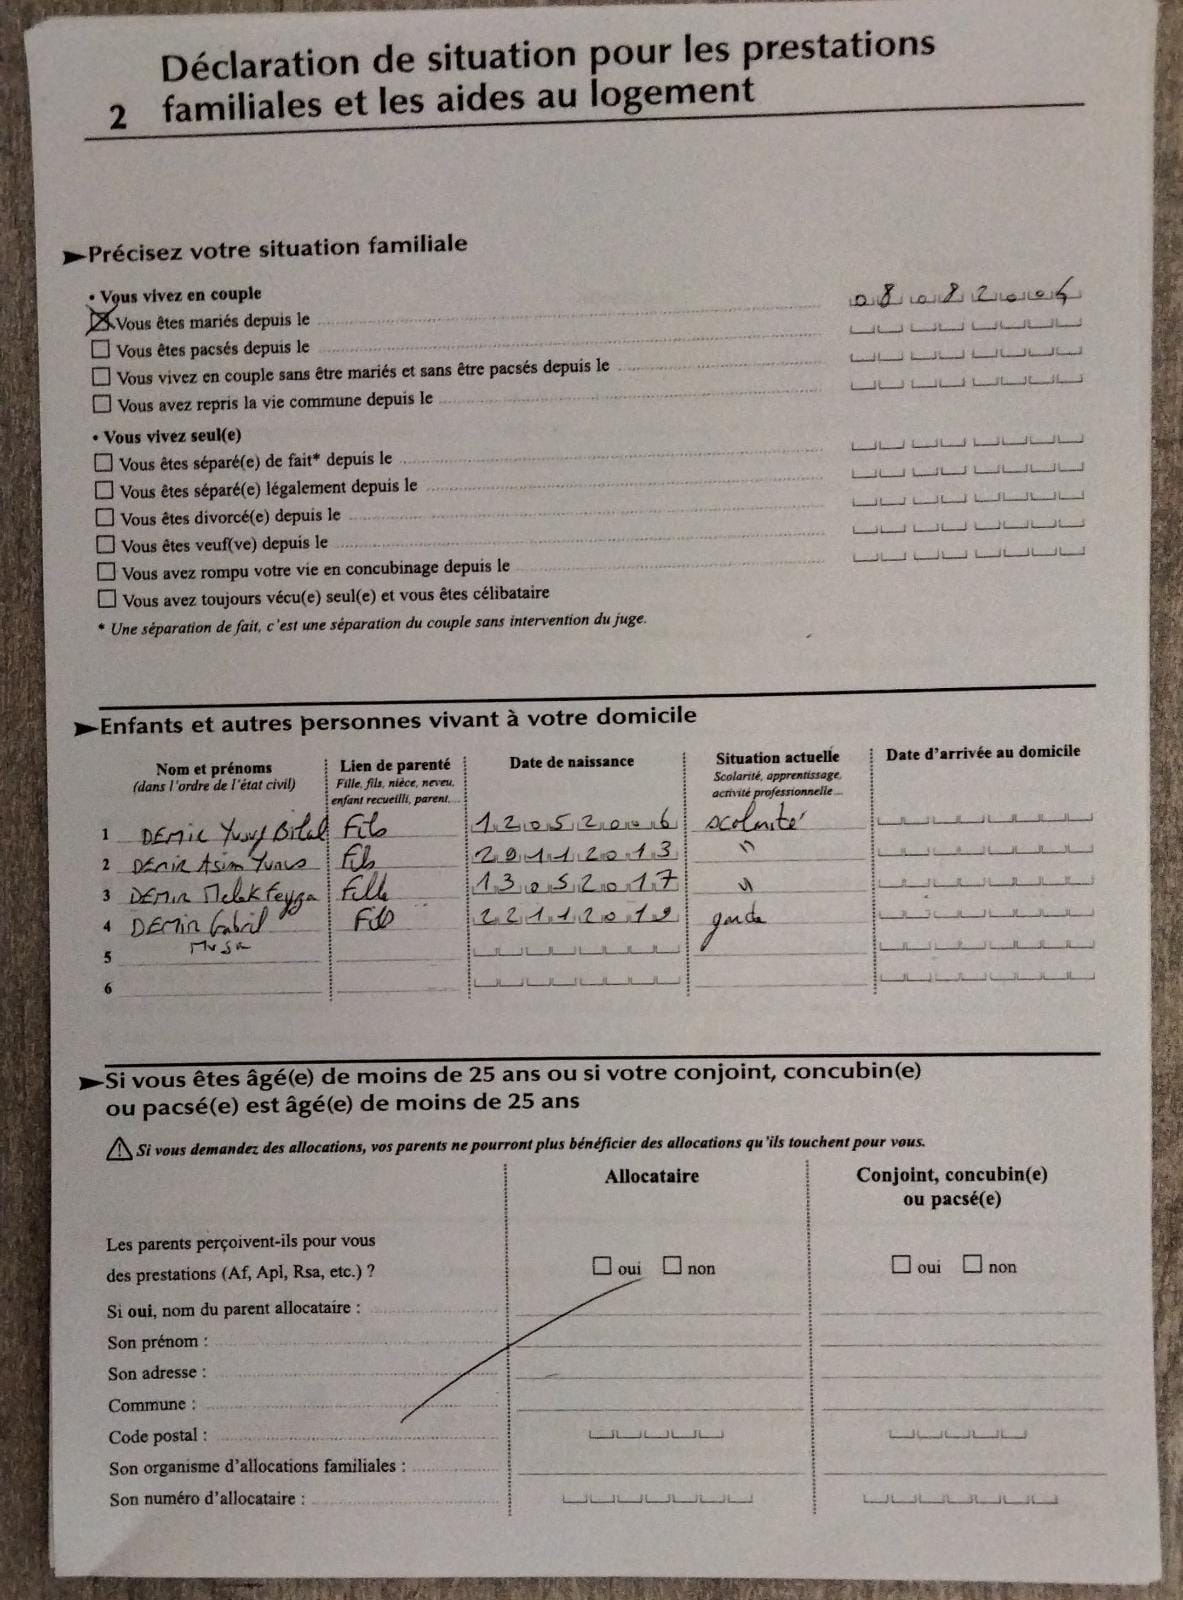 Déclaration de situation pour les prestations
2 familiales et les aides au logement
Précisez votre situation familiale
• Vous vivez en couple
Vous êtes mariés depuis le 08082004
Vous êtes pacsés depuis le
Vous vivez en couple sans être mariés et sans être pacsés depuis le
Vous avez repris la vie commune depuis le
• Vous vivez seul(e)
Vous êtes séparé(e) de fait* depuis le
Vous êtes séparé(e) légalement depuis le
Vous êtes divorcé(e) depuis le
Vous êtes veuf(ve) depuis le
Vous avez rompu votre vie en concubinage depuis le
Vous avez toujours vécu(e) seul(e) et vous êtes célibataire
* Une séparation de fait, c'est une séparation du couple sans intervention du juge.
Enfants et autres personnes vivant à votre domicile
Nom et prénoms Lien de parenté Date de naissance Situation actuelle Date d'arrivée au domicile
(dans l'ordre de l'état civil) Fille, fils, nièce, neveu, Scolarité, apprentissage,
enfant recueilli, parent,... activité professionnelle...
1 DEMIR Yusuf Bilal Fils 12052006 scolarité
2 DEMIR Asim Yunus Fils 29112013 "
3 DEMIR Melek Feyza Fille 13052017 "
4 DEMIR Gabril Fils 22112019 garde
Musa
5
6
Si vous êtes âgé(e) de moins de 25 ans ou si votre conjoint, concubin(e)
ou pacsé(e) est âgé(e) de moins de 25 ans
Si vous demandez des allocations, vos parents ne pourront plus bénéficier des allocations qu'ils touchent pour vous.
Allocataire Conjoint, concubin(e)
ou pacsé(e)
Les parents perçoivent-ils pour vous
des prestations (Af, Apl, Rsa, etc.) ? oui non oui non
Si oui, nom du parent allocataire :
Son prénom :
Son adresse :
Commune :
Code postal :
Son organisme d'allocations familiales :
Son numéro d'allocataire :